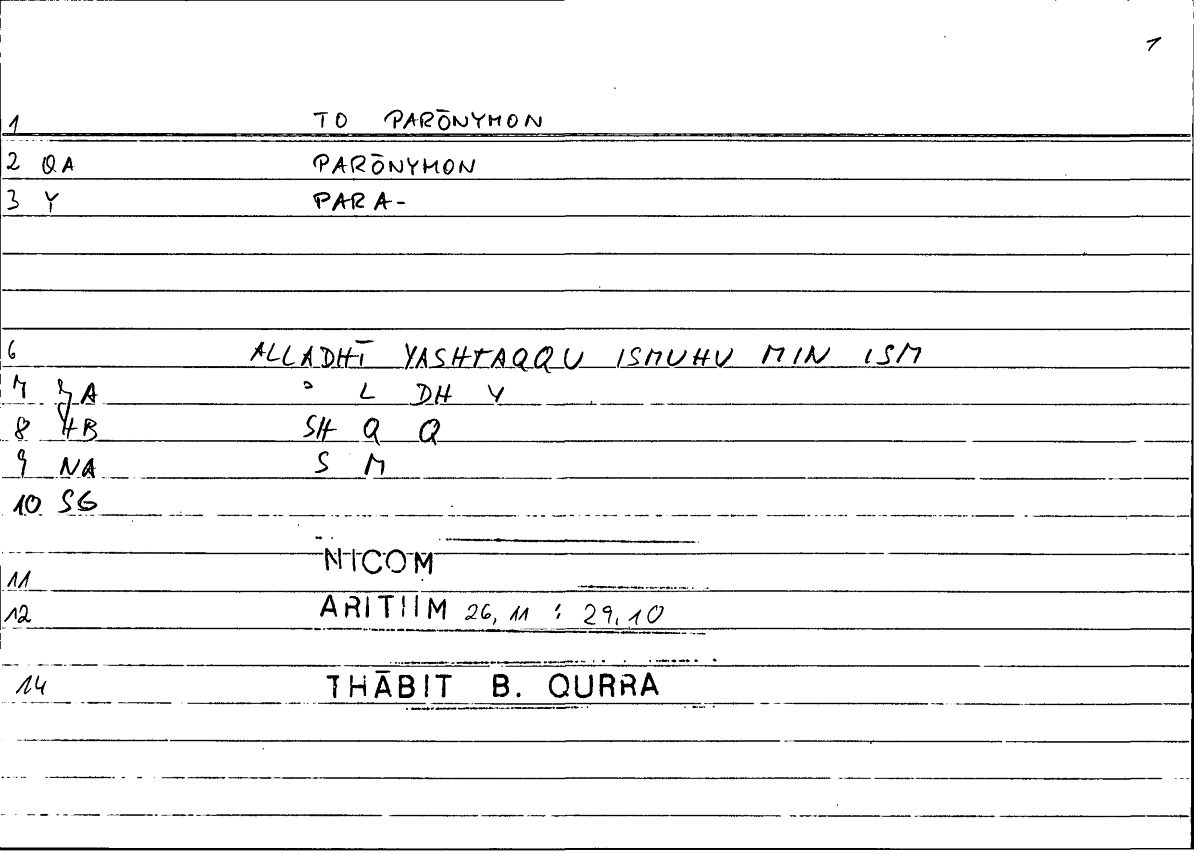 1
1 TO PARŌNYMON
2 QA PARŌNYMON
3 Y PARA-
6 ALLADHĪ YASHTAQQU ISMUHU MIN ISM
7 A ° L DH Y
8 HB SH Q Q
9 NA S M
10 SG
11 NICOM
12 ARITHM 26, 11 : 29, 10
14 THĀBIT B. QURRA